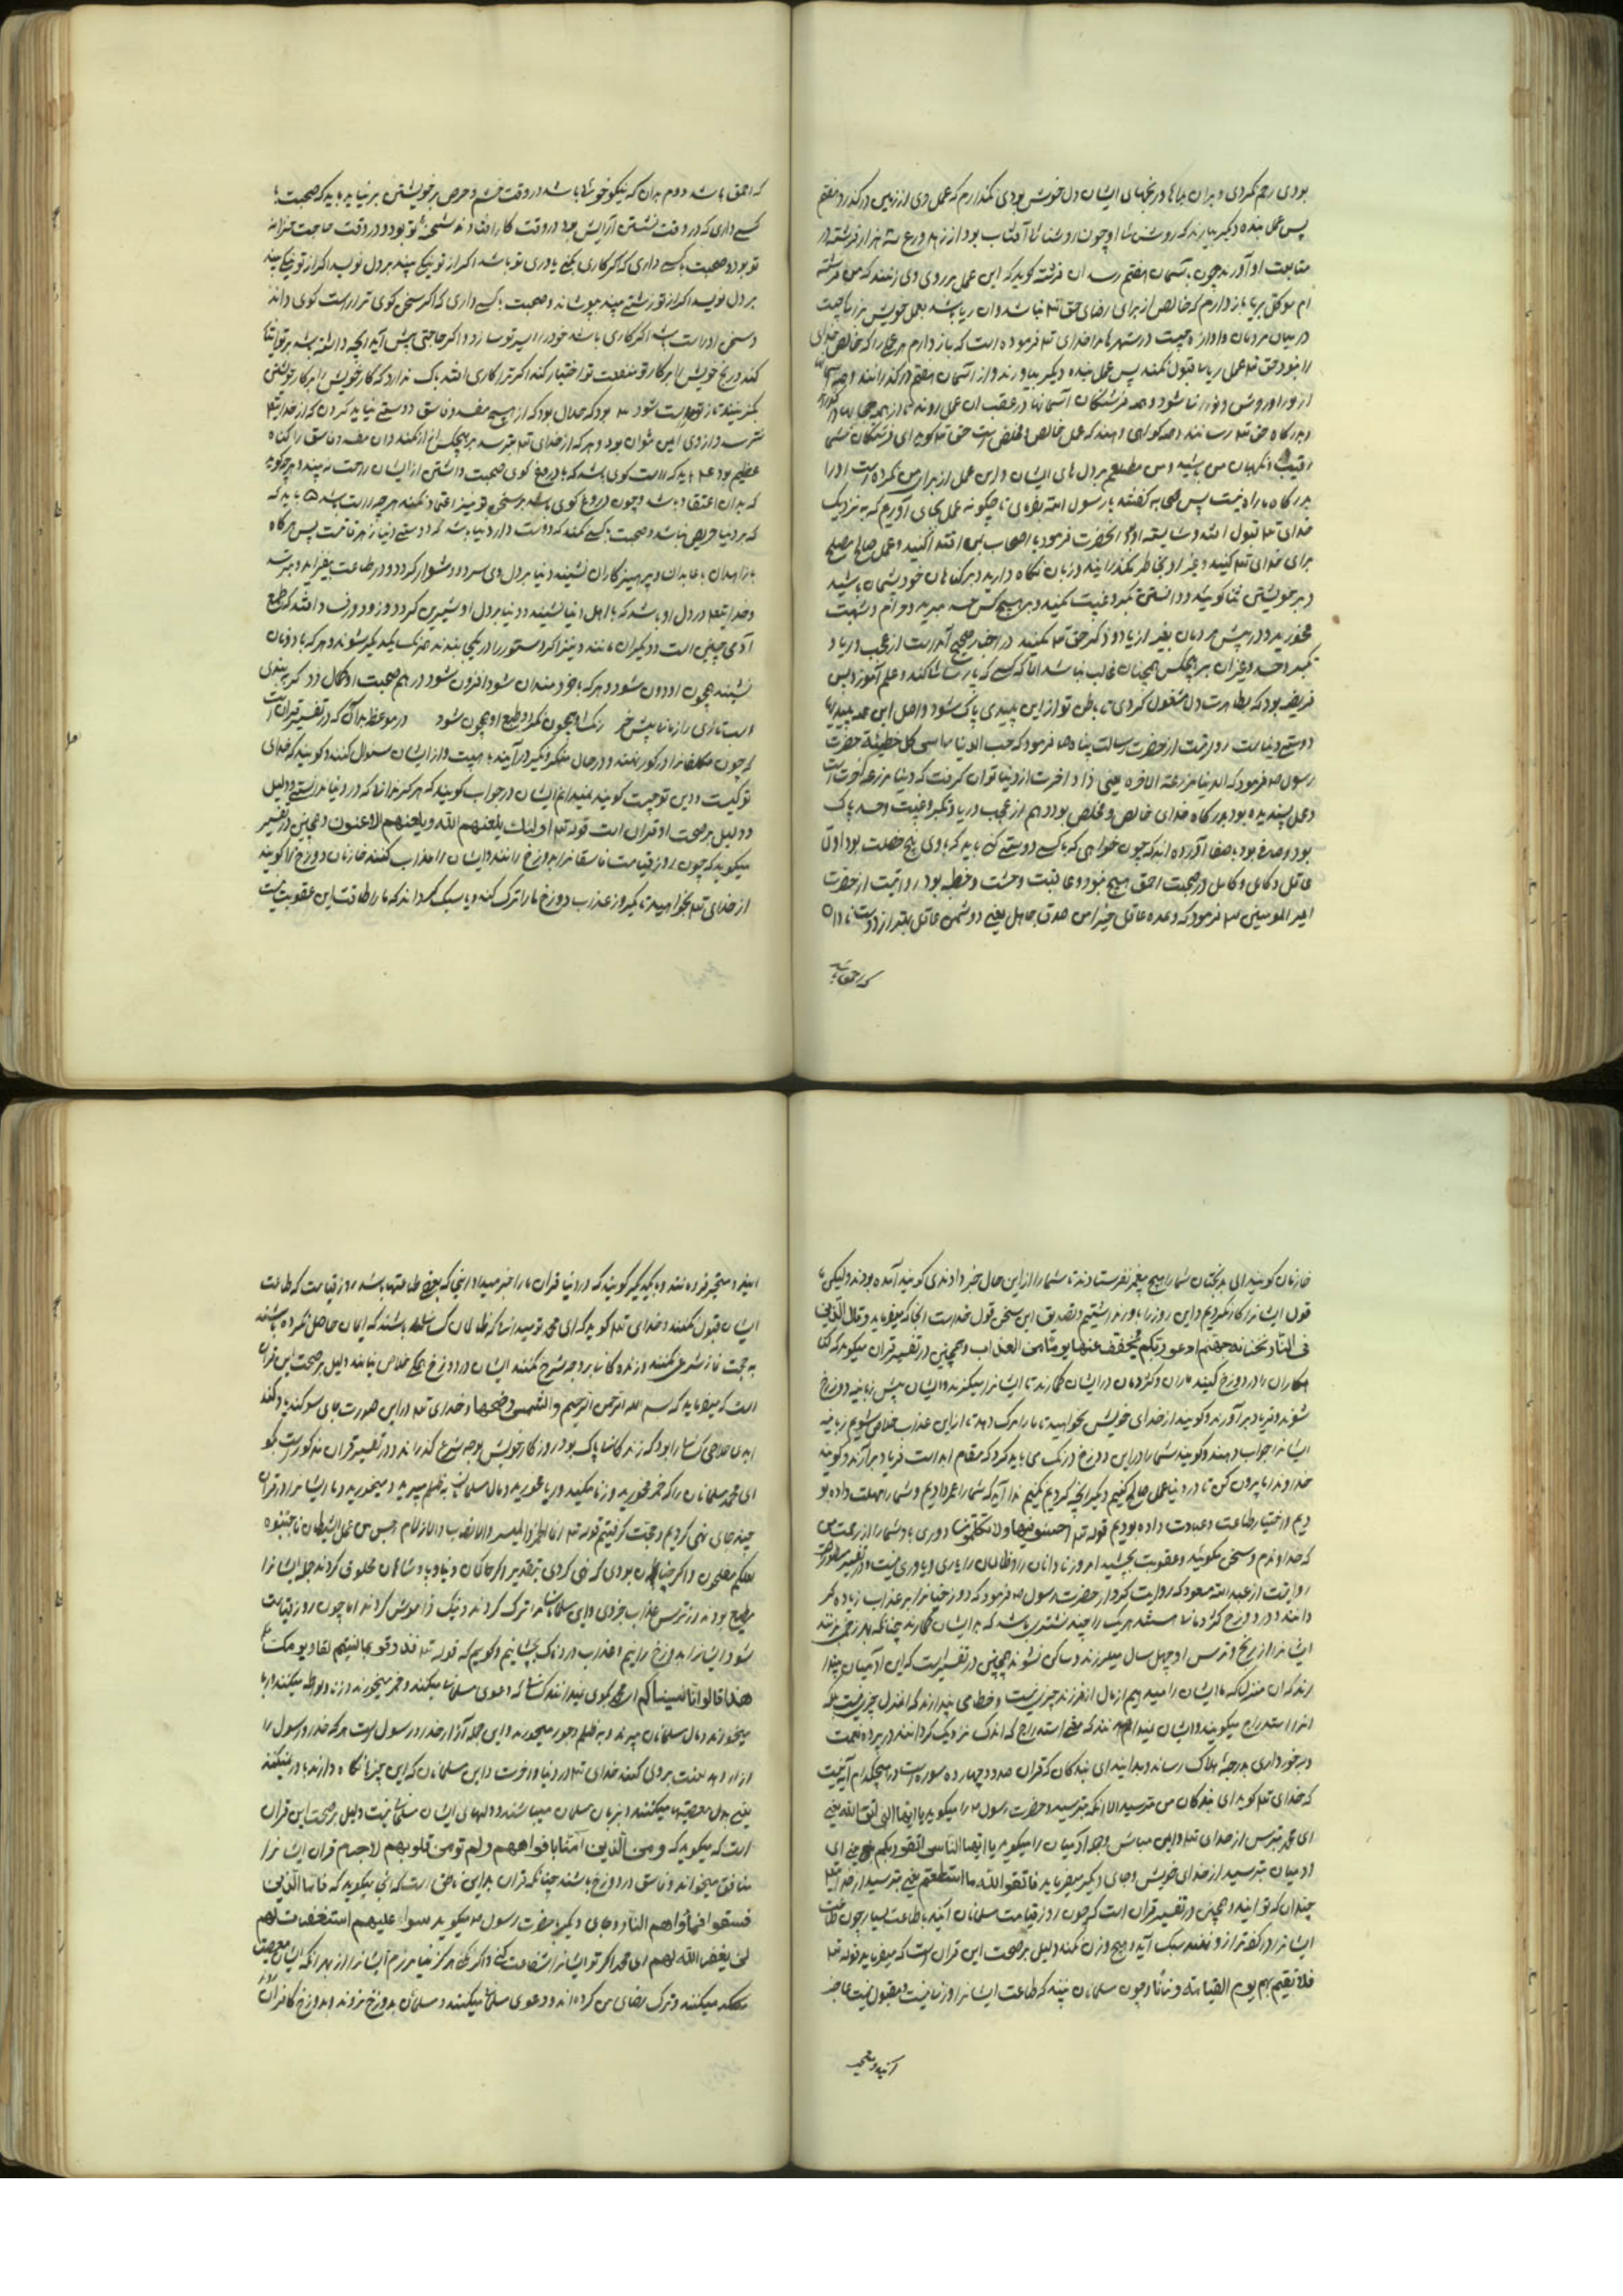 بودی رحم نکردی و بران بلاها و رنجهای ایشان دل خوش بودی نگذارم که عمل وی از زمین درگذرد هفتم
پس عمل بنده دیگر بیارند که روشن شا او چون روشنائی آفتاب بود از زهد و ورع سه هزار فرشته در
متابعت او آورند چون بآسمان هفتم رسد ان فرشته گوید که این عمل بر روی وی زنند که من فرشته
ام موکل بریا باز دارم که خالص از برای رضای حق تع نباشد وان ریا باشد بعمل خویش بزرگی جست
در میان مردمان و آوازه جست در شهرها مرا خدای تع فرموده است که باز دارم هر عمل را که خالص خدای
را نبود حق تع عمل ریا را قبول نکند پس عمل بنده دیگر بیاورند و از آسمان هفتم درگذرانند
از نور او روشن و نورانی شود و همه فرشتگان آسمانها در عقب ان عمل روند تا از همه حجابها
و بدرگاه حق تع رسانند و همه گواهی دهند که عمل خالص و مخلص است حق تع گوید ای فرشتگان شمی
رقیب و نگهبان من باشید و من مطلعم بر دل های ایشان و این عمل از برای من نکرده است او را
بدرگاه ما راه نیست پس صحابه گفتند یا رسول الله بفرمای تا چگونه عمل بجای آوریم که به نزدیک
خدای تع قبول افتد و شایسته او گر آنحضرت فرمود یا اصحاب بمن اقتدا کنید و عمل صالح مصلح
برای خدای تع کنید و غیر او بخاطر نگذرانید و زبان نگاه دارید و بر گناهان خود پشیمان باشید
و بر خویشتن ثنا گویند و دانستن تکبر و غیبت نکنید و بر هیچ کس حسد مبرید و حرام و شبهت
مخورید و در پیش مردمان بغیر از یاد و ذکر حق تع نکنید در اخبار صحیح آمده است از عجب و ریا و
تکبر و حسد و غیر ان بر هیچکس همچنان غالب نباشد الا که کسی که پارسائی کند و علم آموزد پس
فریضه بود که بطهارت دل مشغول گردی تا باطن تو از این پلیدی پاک شود و اصل این همه پلیدیها
دوستی دنیاست روایتست از حضرت رسالت پناه ص فرمود که حب الدنیا رأس کل خطیئة حضرت
رسول ص فرمود که الدنیا مزرعة الاخرة یعنی زاد اخرت از دنیا توان گرفت که دنیا مزرعه آخرت است
و عمل پسندیده بود بدرگاه خدای خالص و مخلص بود و هم از عجب و ریا و تکبر و غیبت و حسد پاک
بود و صدق بود و باصفا آورده اند که چون خواهی که با کسی دوستی کنی باید که با وی پنج خصلت بود اول
عاقل و کامل در صحبت احمق هیچ نبود و عاقبت وحشت و خطبه بود روایتست از حضرت
امیر المومنین ع فرمود که وعده عاقل خیر من صدق جاهل یعنی دوشمن عاقل بهتر از دوست نادان
که احمق باشد
که احمق باشد دوم بدان که نیکو خوی باشد در وقت خشم و حرص بر خویشتن برنیاید باید که صحبت با
کسی داری که در وقت نشستن آرایش بود و در وقت کار افتاده شحنه تو بود و در وقت حاجت خزانه
تو بود و صحبت با کسی داری که اگر کاری کنی یاوری تو باشد اگر از تو نیکی بیند بر دل نویسد اگر از تو نیکی بیند
بر دل نویسد اگر از تو زشتی بیند بپوشاند و صحبت با کسی داری که اگر سخن گوی ترا راست گوی داند
و سخن او راست باشد اگر کاری باشد خود را سپر تو سازد و اگر حاجتی پیش آید آنچه داشته باشد بر تو ایثار
کند و رنج خویش را بر کار تو منفعت تو اختیار کند اگر ترا کاری افتد باک ندارد که کار خویش را بر کار خویش
بگزیند تا از تو درست شود ۳ بود که حلال بود که از هیچ مفسد و فاسق دوستی نباید کردن که از خدا تع
نترسد و از وی ایمن نتوان بود و هر که از خدای تع بترسد بر هیچکس ایمن از نکند و ان مفسد و فاسق را گناه
عظیم بود ۴ باید که راست گوی باشد که با دروغ گوی صحبت داشتن از ایشان راحت نه بیند و هر چه گوید
که بدان اعتقاد باشد و چون دروغ گوی باشد بر سخن تو نیز اعتماد نکنند هر چه راست باشد ۵ باید که
که بر دنیا حریص نباشد و صحبت با کسی کند که دوست دار دنیا باشد که دوستی دنیا زهر قاتلست پس هر گاه
با زاهدان با عابدان و پرهیزگاران نشیند دنیا بر دل وی سرد و دشوار گردد و در طاعت بیفزاید و مرشد
و خدا تع در دل او باشد که با اهل دنیا نشیند دنیا بر دل او شیرین گردد و زود در وی افتد که طبع
آدمی چنین است و دیگران مانند و نیز اگر دستور را در یکجا بندند هر یک بیکدیگر شوند و هر که با دونان
نشیند همچون او دون شود و هر که با خردمندان شود افزون شود در هم صحبت او کمال زد گر ببندی
اسب تازی را زمانا پیش خر رنگ او همچون نگردد طبع او همچون شود در موعظه بدانکه در تفسیر قران است
که چون مکلفانرا در گور نهند و در حال منکر و نکیر درآیند باهیبت و از ایشان سئوال کنند و گویند که خدای
تو کیست و دین تو چیست گویند نمیدانم ایشان در جواب گویند که هرگز ندانی که در دنیا ندانستی و دلیل
و دلیل بر صحت او قران است قوله تع اولئک یلعنهم الله و یلعنهم اللاعنون و همچنین در تفسیر
میگوید که چون روز قیامت فاسقانرا بدوزخ رانند و ایشان را عذاب کنند خازنان دوزخ را گویند
از خدای تع بخواهید تا یکروز عذاب دوزخ ما را ترک کند و یا سبک گرداند که ما را طاقت این عقوبت نیست
خازنان گویند ای بدبختان شما را هیچ پیغمبر نفرستادند تا شما را از این حال خبر دادندی گویند آمده بودند ولیکن ما
قول ایشانرا کار نکردیم و این روز را باور نداشتیم و تصدیق این سخن قول خداست انجا که میفرماید وقال الذین
فی النار لخزنة جهنم ادعوا ربکم یخفف عنا یوما من العذاب و همچنین در تفسیر قران میگوید که گنا
هکاران را در دوزخ کنند ماران و کژدمان در ایشان گمارند تا ایشانرا میگزند و ایشان پیش زبانیه دوزخ
شوند و فریاد برآورند و گویند از خدای خویش بخواهید تا ما را مرگ دهد تا از این عذاب خلاص شویم زبانیه
ایشانرا جواب دهند و گویند شما را در این دوزخ درنگ می باید کرد که مقام ابد است فریاد برآرند و گویند
خداوندا ما را بیرون کن تا در دنیا عمل صالح کنیم و دیگر انچه کردیم نکنیم ندا آید که شما را عمر دادیم و شما را مهلت داده بو
دیم و اختیار طاعت و عبادت داده بودیم قوله تع اخسئوا فیها ولا تکلمون دوری باد شما را از رحمت من
که خداوندم و سخن مگوئید و عقوبت بچشید امروز نادانان را و ظالمان را یاری و یاوری نیست و در تفسیر مسطور است
روایتست از عبدالله مسعود که روایت کرد از حضرت رسول ص فرمود که دوزخیانرا بر عذاب زیاده گر
دانند و در دوزخ کژدمان هستند هر یک را چند شتری باشد که بر ایشان گمارند چنانکه بهر زخمی بزنند
ایشانرا از رنج و ترس او چهل سال میلرزند و ساکن نشوند همچنین در تفسیر است که این ادمیان پندا
رند که ان منزلت که ما ایشان را میدهیم از مال از فرزند چیزی نیست و خطا می پندارند که اندل چیزی نیست بلکه
انرا استدراج میگویند و ایشان نمیدانند که معنی استدراج که اندک نزدیک گردانند در پرده نعمت
و برخورداری بدرجه هلاک رساند و بدانید ای بندگان که قران صد و چهارده سوره است در هیچکدام آیه نیست
که خدای تع گوید ای بندگان من مترسید الا انکه بترسید و حضرت رسول ص را میگوید یا ایها النبی اتق الله یعنی
ای محمد بترس از خدای تع و ایمن مباش و همه ادمیان را میگوید یا ایها الناس اتقوا ربکم یعنی ای
ادمیان بترسید از خدای خویش و جای دیگر میفرماید فاتقوا الله ما استطعتم یعنی بترسید از خدا تع
چندان که توانید و همچنین در تفسیر قران است که چون روز قیامت مسلمانان آیند با طاعت بسیار چون طاعت
ایشانرا در کفه ترازو نهند سبک آید و هیچ وزن نکند و دلیل بر صحت این قران است که میفرماید قوله تع
فلا نقیم لهم یوم القیامة وزنا و چون مسلمانان بینند که طاعت ایشانرا وزنا نیست و مقبول نیست عاجز
آیند و متحیر
ایند و متحیر فرو مانند و بیکدیگر گویند که در دنیا قران ما را خبر میداد از اینکه بعضی طاعتها باشد روز قیامت که طاعت
ایشان قبول نکنند و خدای تع گوید که ای محمد نومید از انها که ظالمان کسانی باشند که ایمان حاصل نکرده باشند
به حجت نماز شرعی نکنند و زنده گانی بر وجه شرع نکنند ایشان در دوزخ بمانند خلاص نیابند دلیل بر صحت این قران
است که میفرماید که بسم الله الرحمن الرحیم والشمس وضحیها و خدای تع در این صورت جای سوگند یاد کند
ابدی خلاصی کسانی را بود که زندگانشان پاک بود و روزگار خویش بوجه شرع گذرانند و در تفسیر قران مذکور است بگو
ای محمد مسلمانان را که خمر مخورید و زنا مکنید و ربا مخورید و مال مسلمانان به ظلم میبرید و میخورید و ما ایشانرا در قران
چند جای نهی کردیم و حجت گرفتیم قوله تع انما الخمر والمیسر والانصاب والازلام رجس من عمل الشیطان فاجتنبوه
لعلکم تفلحون و اگر چنان بودی که نهی کردی بتقدیر اگر حاکمان دنیا و پادشاهان مخلوق کردند جمله ایشانرا
مطیع بودند از ترس عذاب خردی و این مسلمانان ما را ترک کردند و نیک فراموش کردند اما چون روز قیامت
شود ایشانرا بدوزخ رانیم و عذاب دردناک بچشانیم و گویم که قوله تع فذوقوا بما نسیتم لقاء یومکم
هذا قالوا انا نسیناکم ای محمد بگوی نمیدانند کسانی که دعوی مسلمانی میکنند و خمر میخورند و زنا و لواطه میکنند و ربا
میخورند و مال مسلمانان میبرند و به ظلم و جور میخورند و این جمله آزار خدا و رسول است هر که خدا و رسول را
ازارد بد لعنت بروی کند خدای تع در دنیا و اخرت و این مسلمانان که این چیزها نگاه دارند باور نمیکنند
یعنی بدل معصیتها میکنند و بزبان مسلمان میباشند و دلهای ایشان مسلمان نیست دلیل بر صحت این قران
است که میگوید که و من الذین آمنا بافواههم ولم تومن قلوبهم لاجرم قران ایشانرا
منافق میخواند و فاسق در دوزخ باشند چنانکه قران بدین ناطق است که انی میگوید که فاما الذین
فسقوا فمأواهم النار و جای دیگر بحضرت رسول ص میگوید سواء علیهم استغفرت لهم
لن یغفر الله لهم ای محمد اگر تو ایشانرا شفاعت کنی و اگر نکنی هرگز نیامرزم ایشانرا از بهر انکه ایشان معصیت
میکنند و ترک رضای من کرده اند و دعوی مسلمانی میکنند و مسلمانان بدوزخ نروند و بدوزخ کافران